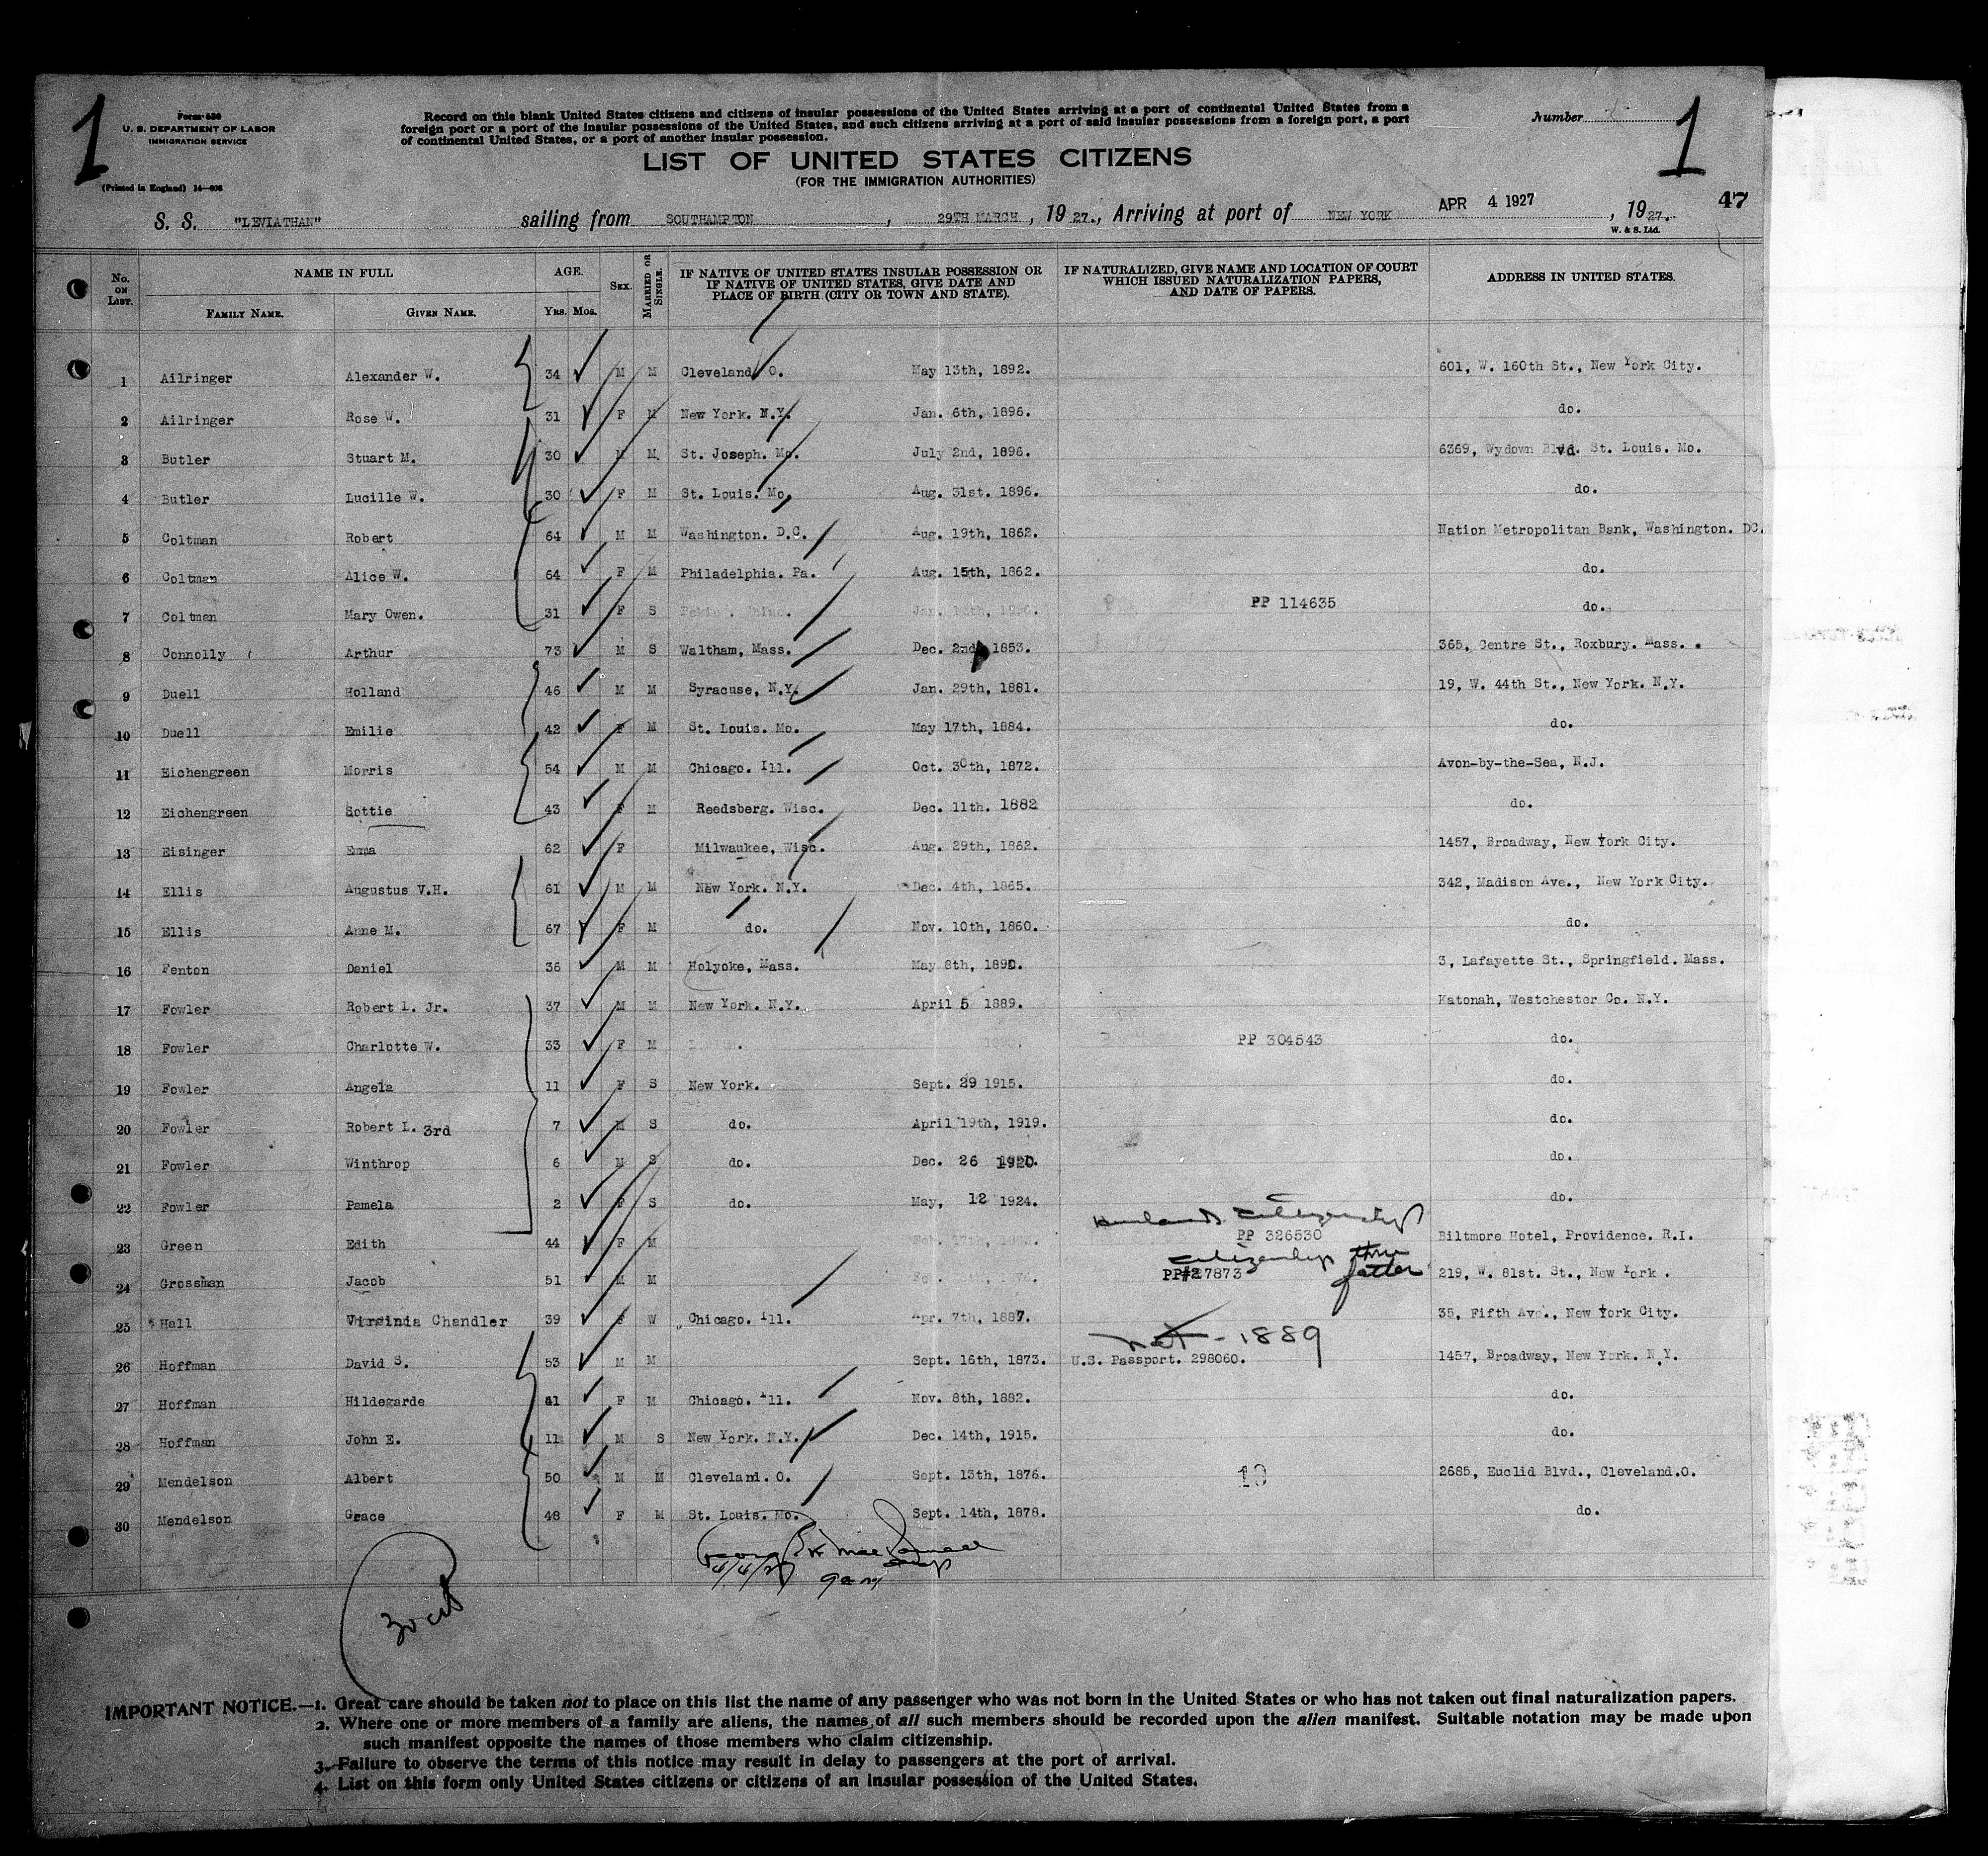 1
Form 630
U. S. DEPARTMENT OF LABOR
IMMIGRATION SERVICE
(Printed in England) 14—608
Record on this blank United States citizens and citizens of insular possessions of the United States arriving at a port of continental United States from a
foreign port or a port of the insular possessions of the United States, and such citizens arriving at a port of said insular possessions from a foreign port, a port
of continental United States, or a port of another insular possession.
LIST OF UNITED STATES CITIZENS
(FOR THE IMMIGRATION AUTHORITIES)
Number
1
S. S. "LEVIATHAN" sailing from SOUTHAMPTON, 29TH MARCH, 1927., Arriving at port of NEW YORK APR 4 1927, 1927.
47
W. & S. Ltd.
No. ON LIST. NAME IN FULL FAMILY NAME. GIVEN NAME. AGE. YRS. MOS. SEX. MARRIED OR SINGLE. IF NATIVE OF UNITED STATES INSULAR POSSESSION OR IF NATIVE OF UNITED STATES, GIVE DATE AND PLACE OF BIRTH (CITY OR TOWN AND STATE). IF NATURALIZED, GIVE NAME AND LOCATION OF COURT WHICH ISSUED NATURALIZATION PAPERS, AND DATE OF PAPERS. ADDRESS IN UNITED STATES.
1 Ailringer Alexander W. 34 M M Cleveland O. May 13th, 1892. 601, W. 160th St., New York City.
2 Ailringer Rose W. 31 F M New York. N.Y. Jan. 6th, 1896. do.
3 Butler Stuart M. 30 M M. St. Joseph. Mo. July 2nd, 1896. 6369, Wydown Blvd. St. Louis. Mo.
4 Butler Lucille W. 30 F M St. Louis. Mo. Aug. 31st. 1896. do.
5 Coltman Robert 64 M M Washington. D.C. Aug. 19th, 1862. Nation Metropolitan Bank, Washington. DC.
6 Coltman Alice W. 64 F M Philadelphia. Pa. Aug. 15th, 1862. do.
7 Coltman Mary Owen. 31 F S PP 114635 do.
8 Connolly Arthur 73 M S Waltham, Mass. Dec. 2nd 1853. 365, Centre St., Roxbury. Mass.
9 Duell Holland 46 M M Syracuse, N.Y. Jan. 29th, 1881. 19, W. 44th St., New York. N.Y.
10 Duell Emilie 42 F M St. Louis. Mo. May 17th, 1884. do.
11 Eichengreen Morris 54 M M Chicago. Ill. Oct. 30th, 1872. Avon-by-the-Sea, N.J.
12 Eichengreen Sottie 43 F M Reedsberg. Wisc. Dec. 11th. 1882 do.
13 Eisinger Emma 62 F Milwaukee, Wisc. Aug. 29th, 1862. 1457, Broadway, New York City.
14 Ellis Augustus V.H. 61 M M New York. N.Y. Dec. 4th, 1865. 342, Madison Ave., New York City.
15 Ellis Anne M. 67 F M do. Nov. 10th, 1860. do.
16 Fenton Daniel 36 M M Holyoke, Mass. May 8th, 1890. 3, Lafayette St., Springfield. Mass.
17 Fowler Robert L. Jr. 37 M M New York. N.Y. April 5 1889. Katonah, Westchester Co. N.Y.
18 Fowler Charlotte W. 33 F M PP 304543 do.
19 Fowler Angela 11 F S New York. Sept. 29 1915. do.
20 Fowler Robert L. 3rd 7 M S do. April 19th, 1919. do.
21 Fowler Winthrop 6 M S do. Dec. 26 1920. do.
22 Fowler Pamela 2 F S do. May, 12 1924. do.
husbands citizenship
23 Green Edith 44 F M PP 326530 Biltmore Hotel, Providence. R.I.
citizenship thru father
24 Grossman Jacob 51 M M PP#27873 219, W. 81st. St., New York.
25 Hall Virginia Chandler 39 F W Chicago. Ill. Apr. 7th, 1887. 35, Fifth Ave., New York City.
nat - 1889
26 Hoffman David S. 53 M M Sept. 16th, 1873. U.S. Passport. 298060. 1457, Broadway, New York. N.Y.
27 Hoffman Hildegarde 41 F M Chicago. Ill. Nov. 8th, 1882. do.
28 Hoffman John E. 11 M S New York. N.Y. Dec. 14th, 1915. do.
29 Mendelson Albert 50 M M Cleveland. O. Sept. 13th, 1876. 10 2685, Euclid Blvd., Cleveland.O.
30 Mendelson Grace 48 F M St. Louis. Mo. Sept. 14th, 1878. do.
4/4/27 9am
30 cit
IMPORTANT NOTICE.—1. Great care should be taken not to place on this list the name of any passenger who was not born in the United States or who has not taken out final naturalization papers.
2. Where one or more members of a family are aliens, the names of all such members should be recorded upon the alien manifest. Suitable notation may be made upon
such manifest opposite the names of those members who claim citizenship.
3. Failure to observe the terms of this notice may result in delay to passengers at the port of arrival.
4. List on this form only United States citizens or citizens of an insular possession of the United States.